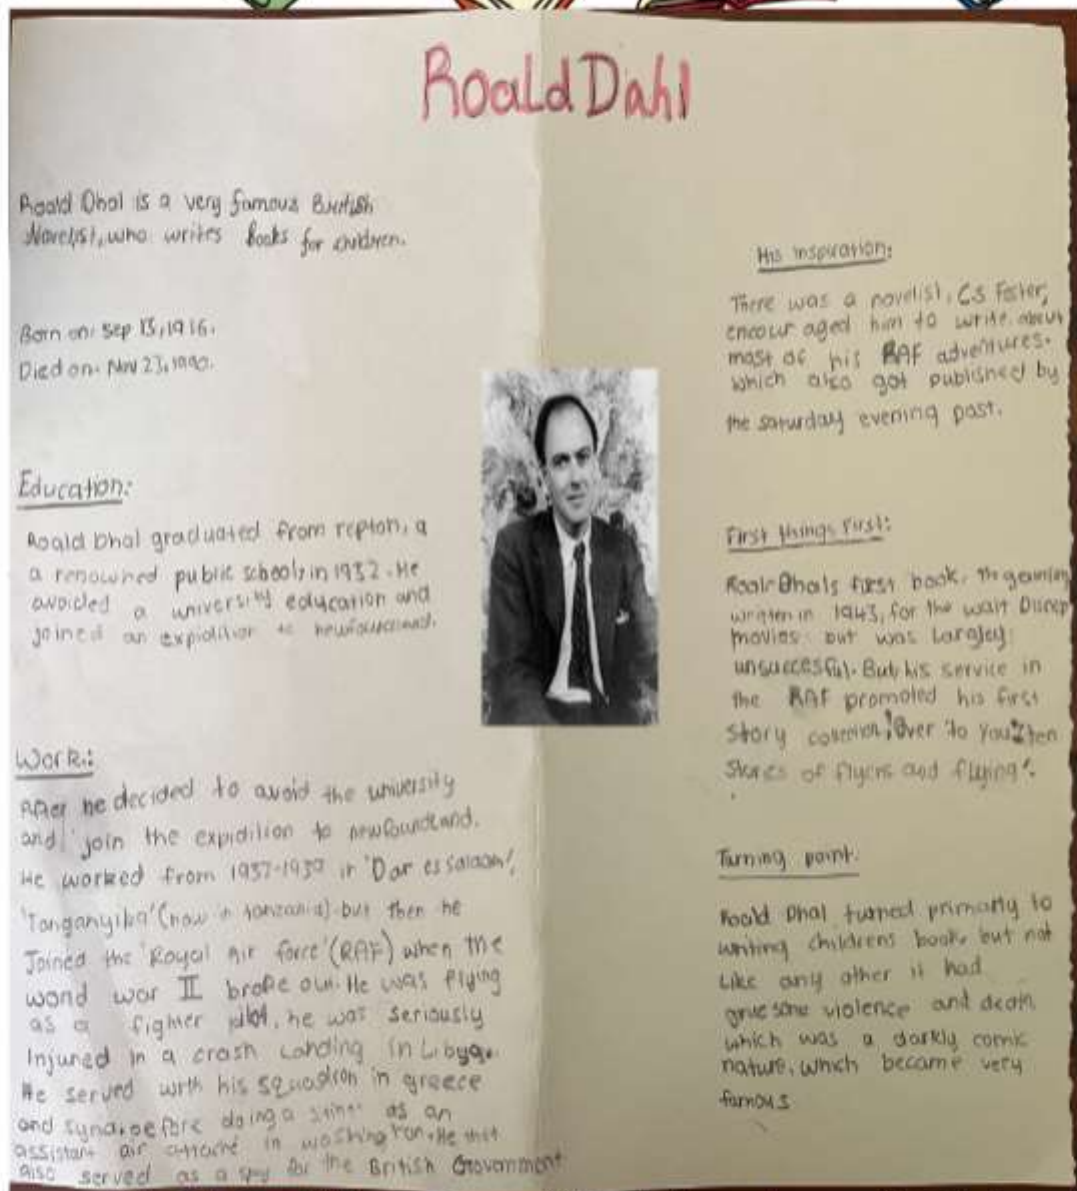 Roald Dahl
Roald Dhal is a very famous British
Novelist, who writes Books for children.
Born on: Sep 13, 1916.
Died on: Nov 23, 1990.
Education:
Roald Dhal graduated from repton, a
a renowned public schools in 1932. He
avoided a university education and
joined an expidition to newfoundland.
Work:
After he decided to avoid the university
and join the expidition to newfoundland.
He worked from 1937-1939 in 'Dar es salaam',
'Tanganyika' (now in tanzania) but then he
Joined the 'Royal Air force' (RAF) when the
world war II broke out. He was flying
as a fighter pilot, he was seriously
Injured in a crash Landing in Libya.
He served with his squadron in greece
and syria. before doing a stint as an
assistant air attaché in washington. He
also served as a spy for the British Government
His inspiration:
There was a novelist, CS Foster,
encouraged him to write about
most of his RAF adventures.
which also got published by
the saturday evening post.
First things First:
Roald Dhals first book, The
written in 1943, for the walt Disney
movies but was Largley
unsuccesful. But, his service in
the RAF promoted his first
story collection, 'Over to You: ten
stories of flyers and flying'.
Turning point.
Roald Dhal turned primarly to
writing childrens book, but not
Like any other it had
gruesome violence and death
which was a darkly comic
nature, which became very
famous